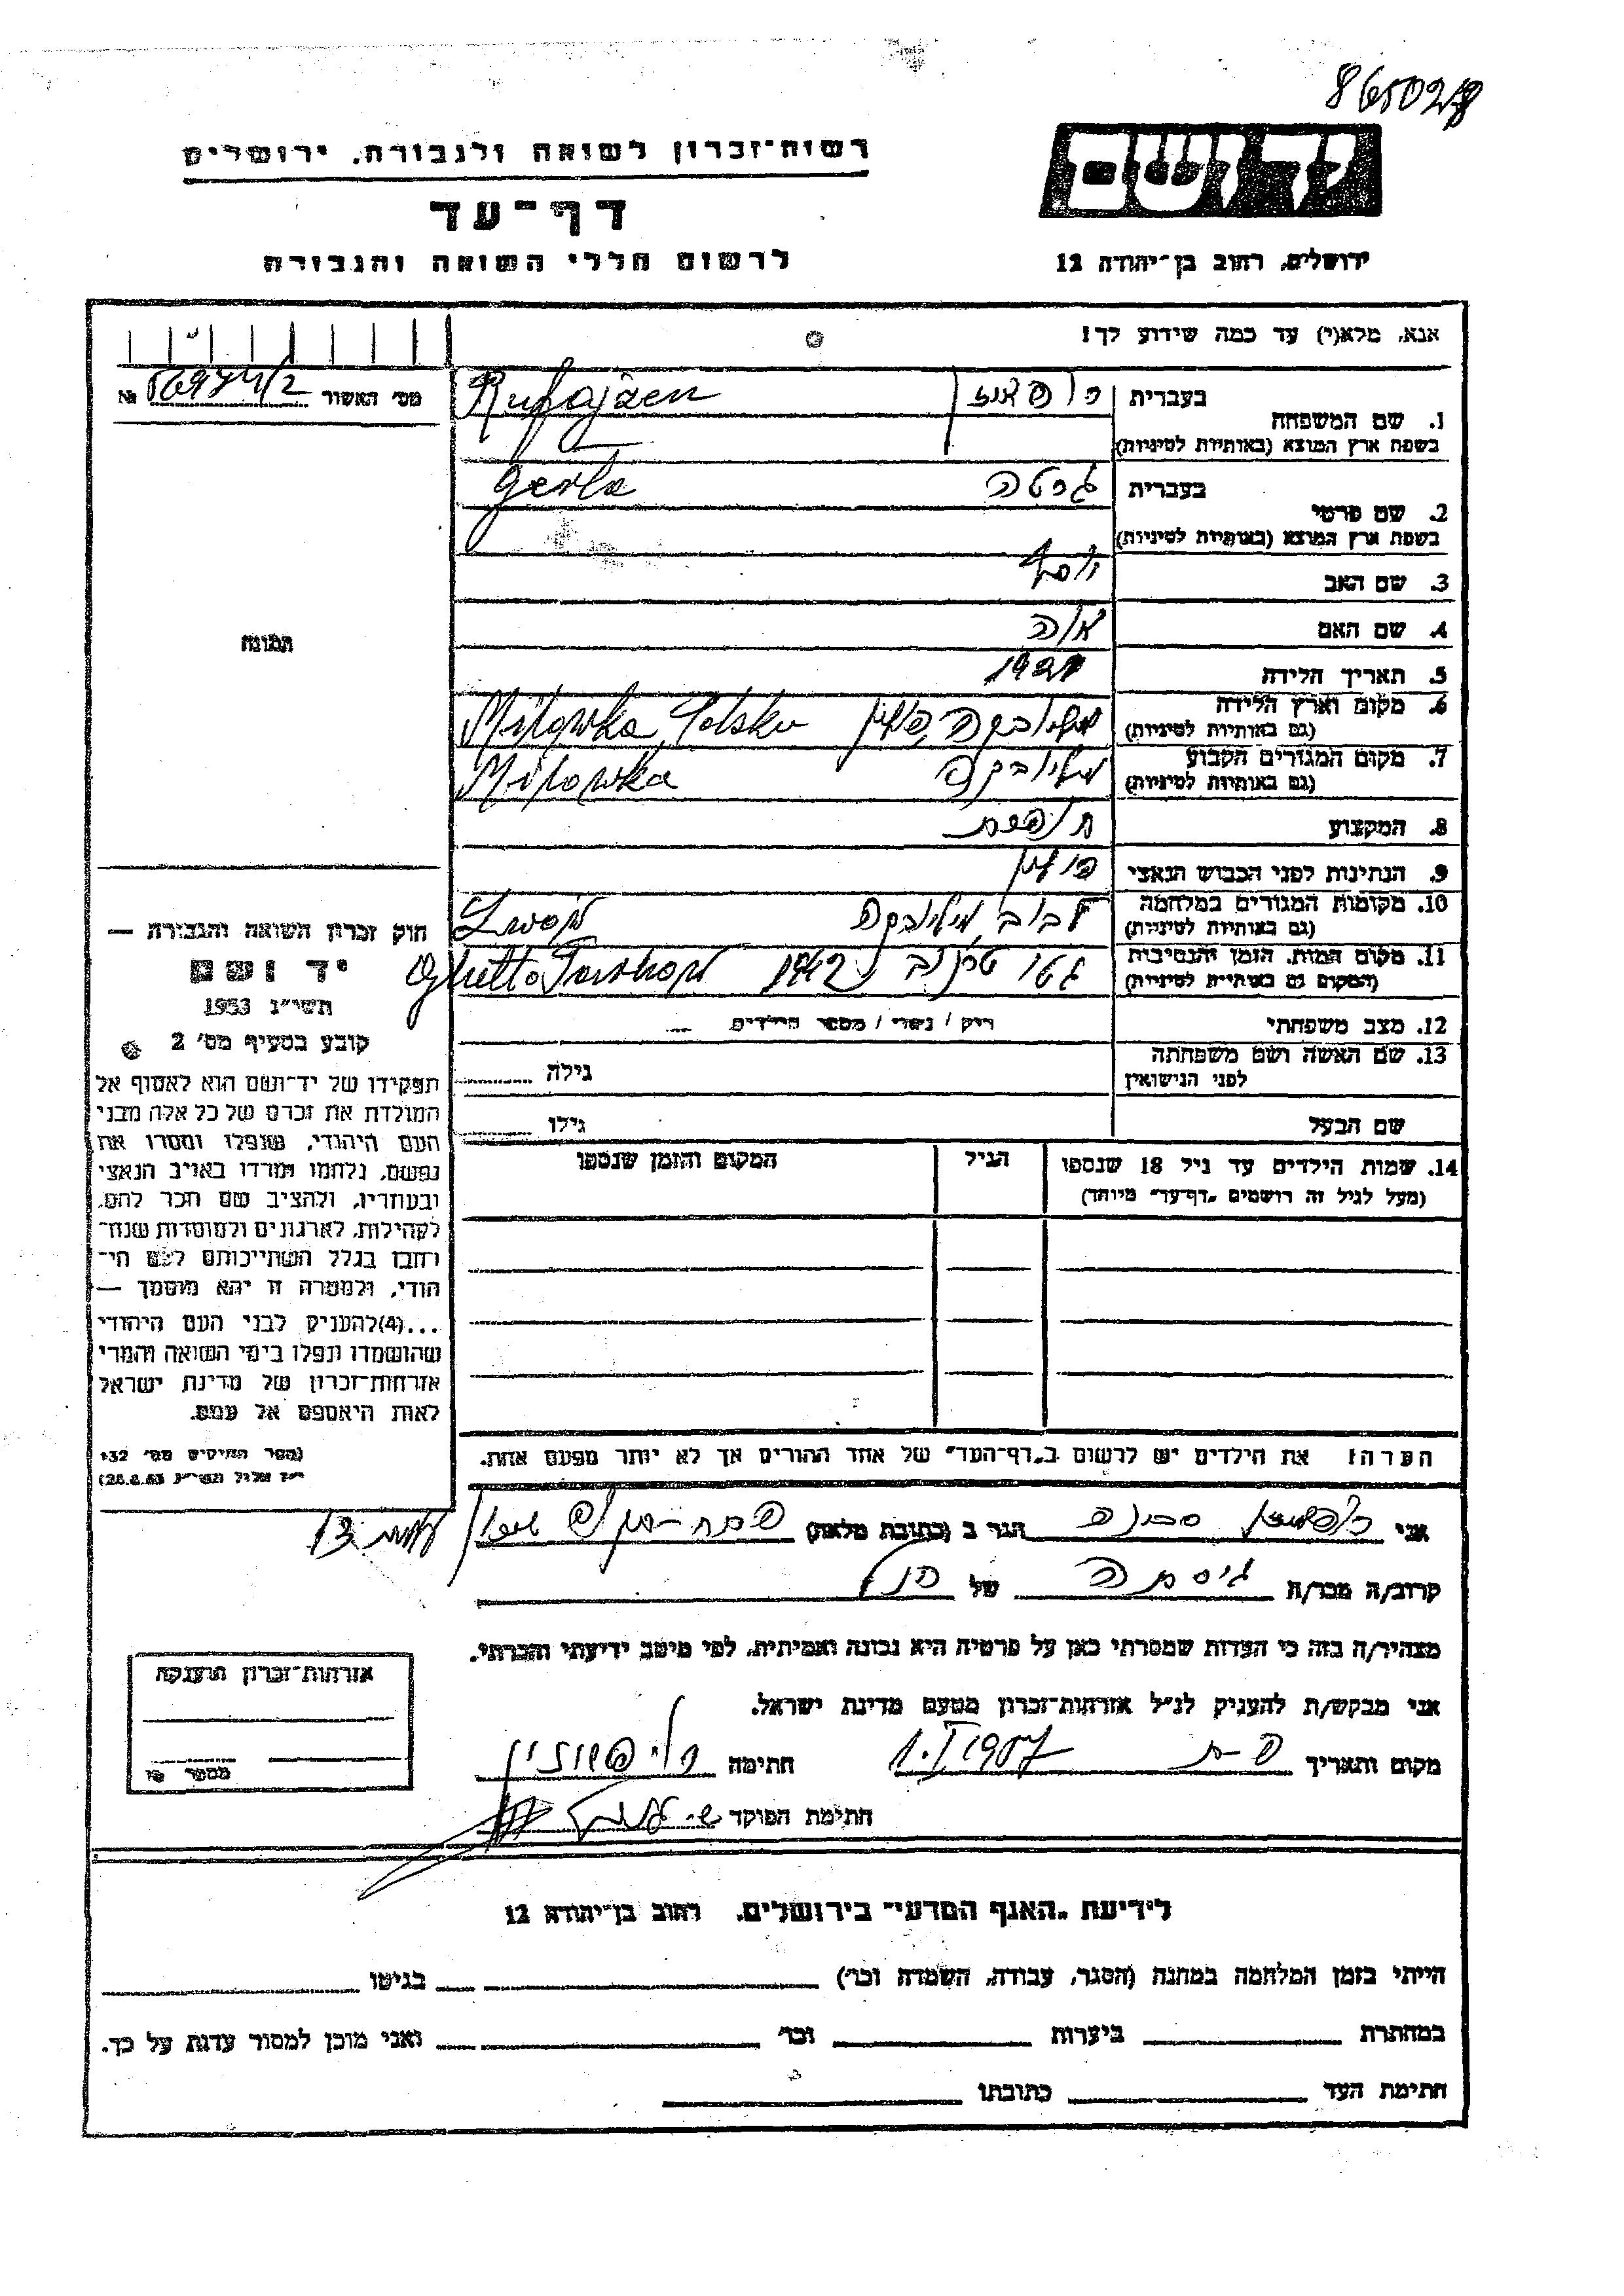 יד ושם
רשות־זכרון לשואה ולגבורה, ירושלים
דף־עד
לרשום חללי השואה והגבורה
ירושלים, רחוב בן־יהודה 12
אנא, מלא(י) עד כמה שידוע לך!
מס׳ האשור №
1. שם המשפחה
בעברית
בשפת ארץ המוצא (באותיות לטיניות)
Rufajzen
2. שם פרטי
בעברית גרטה
בשפת ארץ המוצא (באותיות לטיניות)
Gerta
3. שם האב יוסף
4. שם האם
5. תאריך הלידה
6. מקום וארץ הלידה
(גם באותיות לטיניות)
Milowka, Polska מילובקה, פולין
7. מקום המגורים הקבוע
(גם באותיות לטיניות)
Milowka מילובקה
8. המקצוע תופרת
9. הנתינות לפני הכבוש הנאצי פולין
10. מקומות המגורים במלחמה
(גם באותיות לטיניות)
לבוב, מילובקה
11. מקום המות, הזמן והנסיבות
(המקום גם באותיות לטיניות)
Ghetto גטו 1942
12. מצב משפחתי רוק / נשוי / מספר הילדים
13. שם האשה ושם משפחתה
לפני הנישואין
גילה
שם הבעל גילו
14. שמות הילדים עד גיל 18 שנספו הגיל המקום והזמן שנספו
(מעל לגיל זה רושמים „דף־עד״ מיוחד)
הערה! את הילדים יש לרשום ב„דף־העד״ של אחד ההורים אך לא יותר מפעם אחת.
תמונה
חוק זכרון השואה והגבורה —
יד ושם
תשי״ג 1953
קובע בסעיף מס׳ 2
תפקידו של יד־ושם הוא לאסוף אל
המולדת את זכרם של כל אלה מבני
העם היהודי, שנפלו ומסרו את
נפשם, נלחמו ומרדו באויב הנאצי
ובעוזריו, ולהציב שם וזכר להם,
לקהילות, לארגונים ולמוסדות שנח־
רבו בגלל השתייכותם לעם הי־
הודי, ולמטרה זו יהא מוסמך —
...(4) להעניק לבני העם היהודי
שהושמדו ונפלו בימי השואה והמרי
אזרחות־זכרון של מדינת ישראל
לאות היאספם אל עמם.
(ספר החוקים מס׳ 132
אני הגר ב (כתובת מלאה)
קרוב/ה מכר/ה גיסתה של
מצהיר/ה בזה כי העדות שמסרתי כאן על פרטיה היא נכונה ואמיתית, לפי מיטב ידיעתי והכרתי.
אני מבקש/ת להעניק לנ״ל אזרחות־זכרון מטעם מדינת ישראל.
מקום ותאריך חתימה
חתימת הפוקד
אזרחות־זכרון הוענקה
מספר
לידיעת „האגף המדעי״ בירושלים, רחוב בן־יהודה 12
הייתי בזמן המלחמה במחנה (הסגר, עבודה, השמדה וכו׳) בגיטו
במחתרת ביערות וכו׳ ואני מוכן למסור עדות על כך.
חתימת העד כתובתו